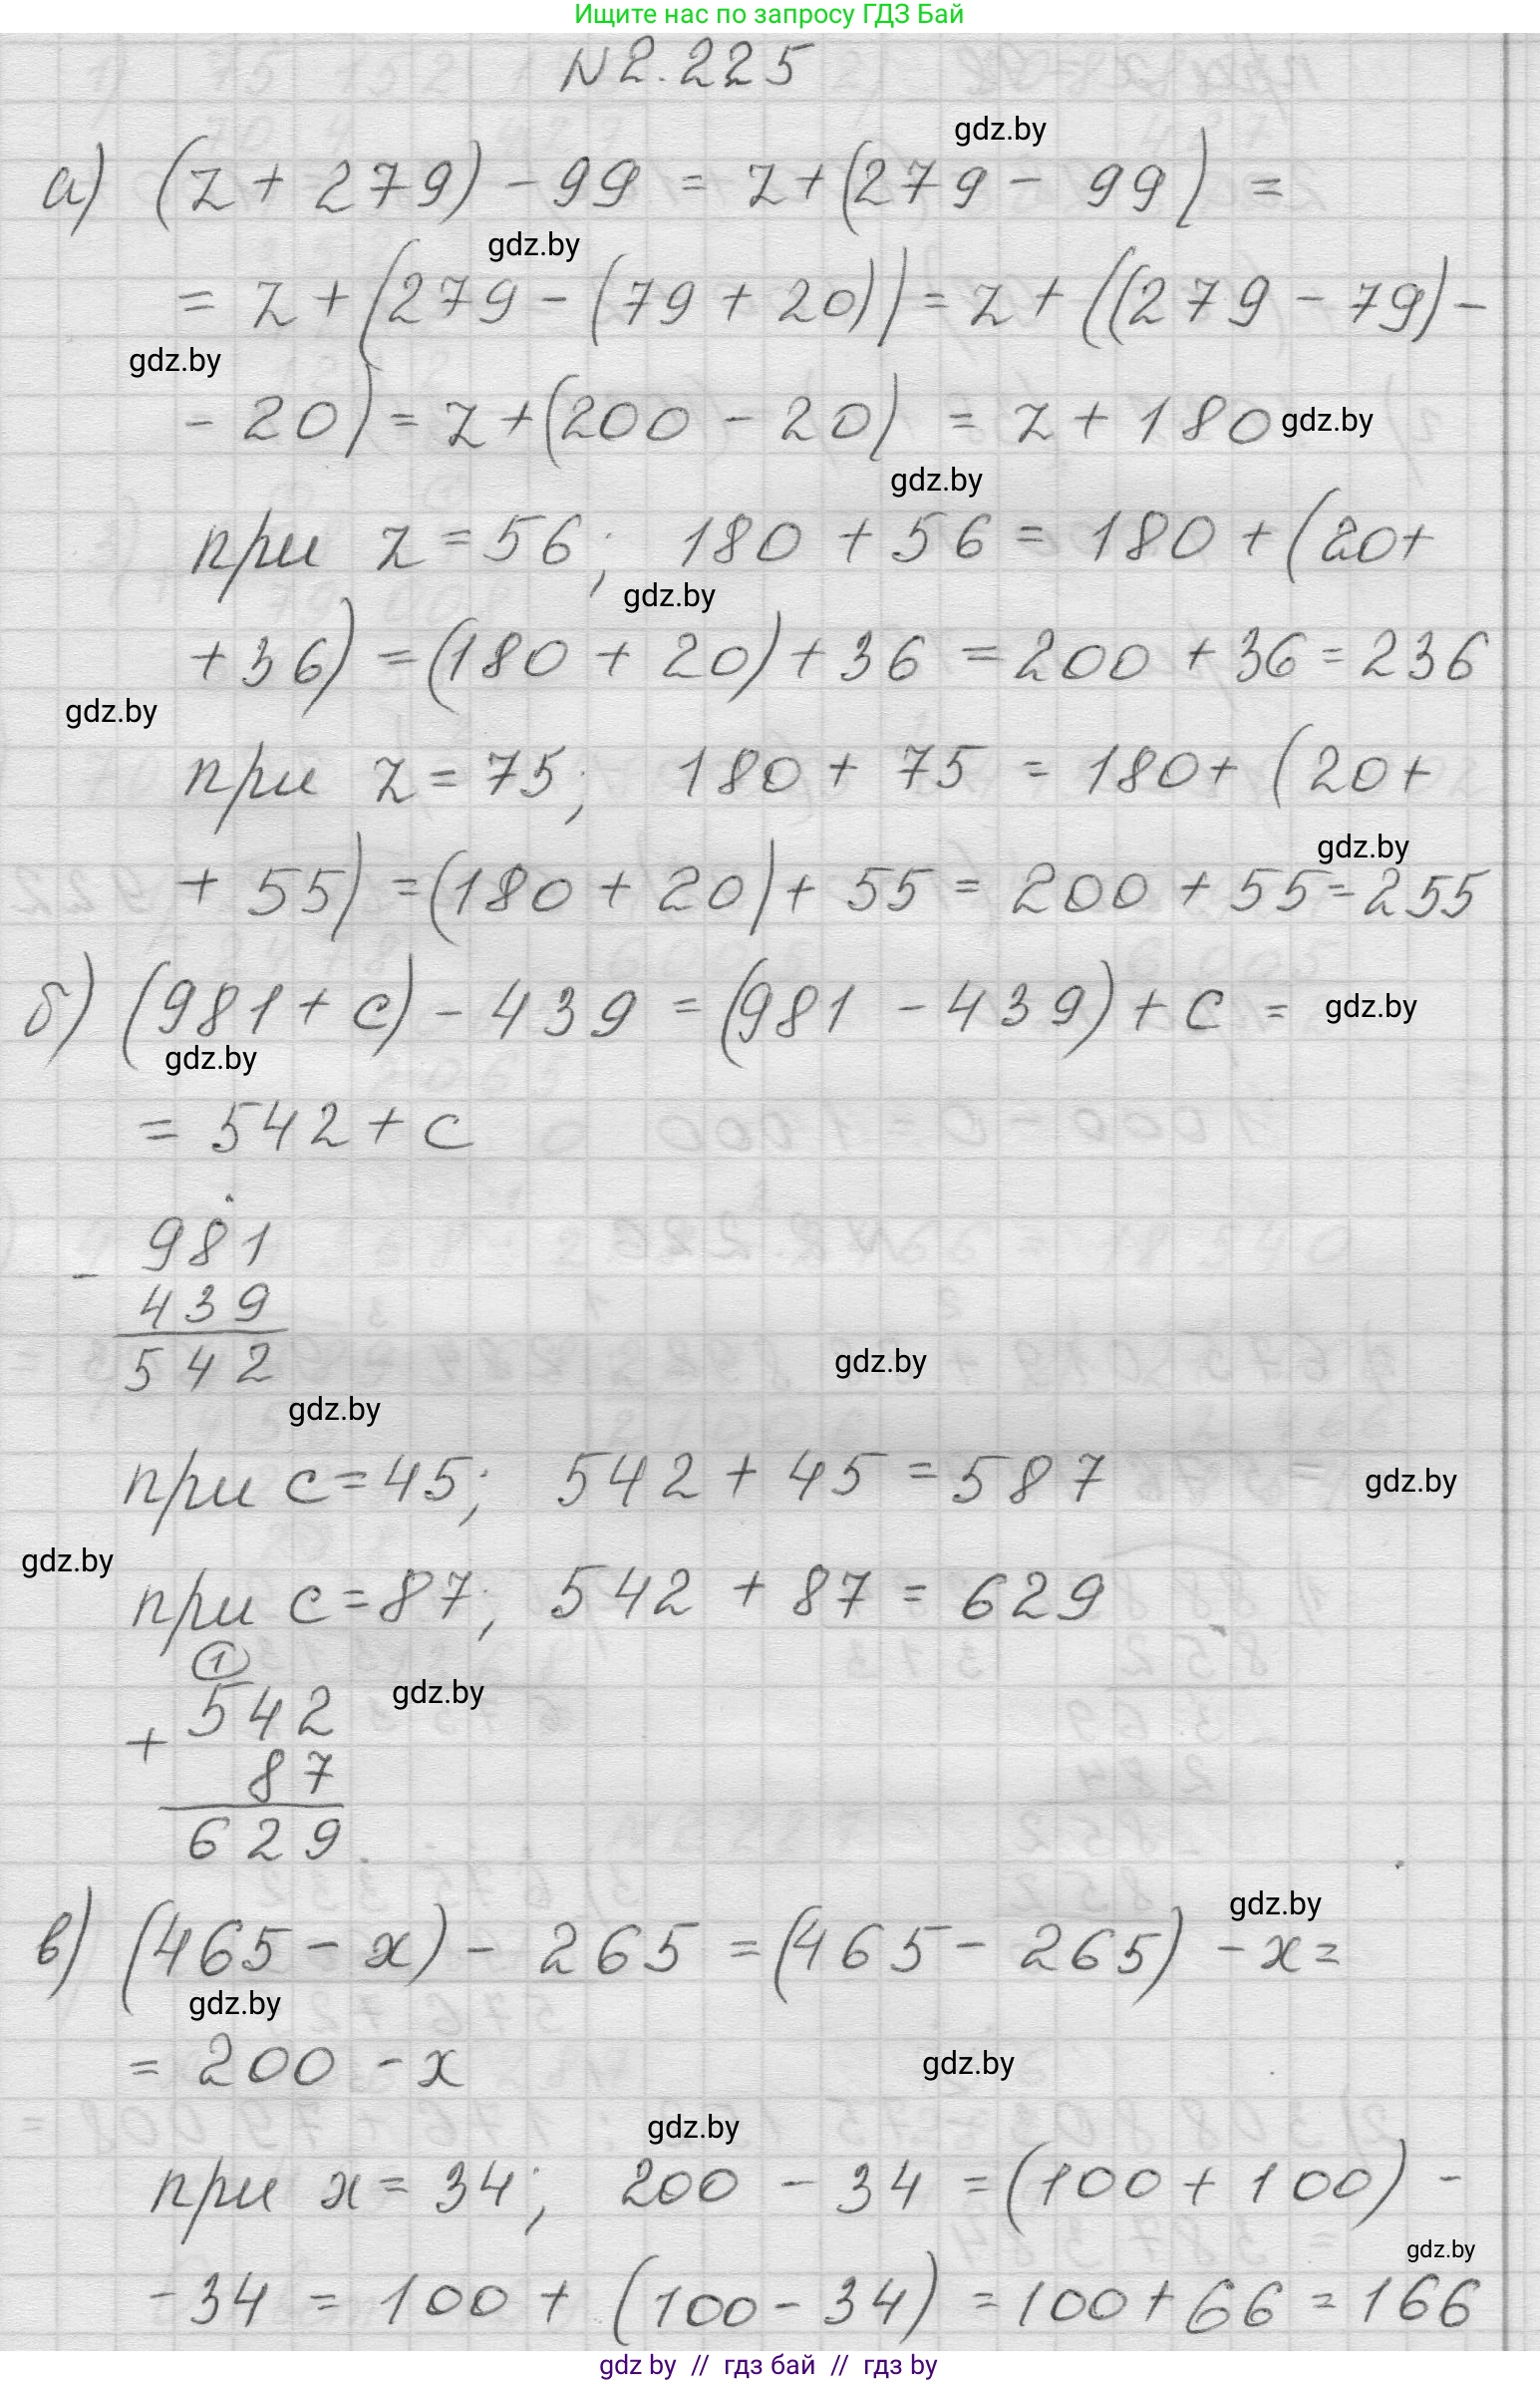 Ищите нас по запросу ГДЗ Бай
N 2.225
gdz.by
а) (z + 279) - 99 = z + (279 - 99) =
gdz.by
= z + (279 - (79 + 20)) = z + ((279 - 79) -
gdz.by
- 20) = z + (200 - 20) = z + 180 gdz.by
gdz.by
при z = 56; 180 + 56 = 180 + (20+
gdz.by
+ 36) = (180 + 20) + 36 = 200 + 36 = 236
gdz.by
при z = 75; 180 + 75 = 180 + (20+
gdz.by
+ 55) = (180 + 20) + 55 = 200 + 55 = 255
б) (981 + c) - 439 = (981 - 439) + c = gdz.by
gdz.by
= 542 + c
981
-
439
542
gdz.by
gdz.by
при c = 45; 542 + 45 = 587 gdz.by
gdz.by
при c = 87; 542 + 87 = 629
1
542 gdz.by
+
87
629
gdz.by
в) (465 - x) - 265 = (465 - 265) - x =
gdz.by
= 200 - x gdz.by
gdz.by
при x = 34; 200 - 34 = (100 + 100) -
gdz.by
- 34 = 100 + (100 - 34) = 100 + 66 = 166
gdz by // гдз бай // гдз by